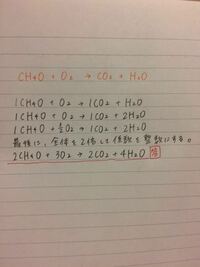 CH4O + O2 → CO2 + H2O
1CH4O + O2 → 1CO2 + H2O
1CH4O + O2 → 1CO2 + 2H2O
1CH4O + 3/2O2 → 1CO2 + 2H2O
最後に、全体を2倍して係数を整数にする。
2CH4O + 3O2 → 2CO2 + 4H2O